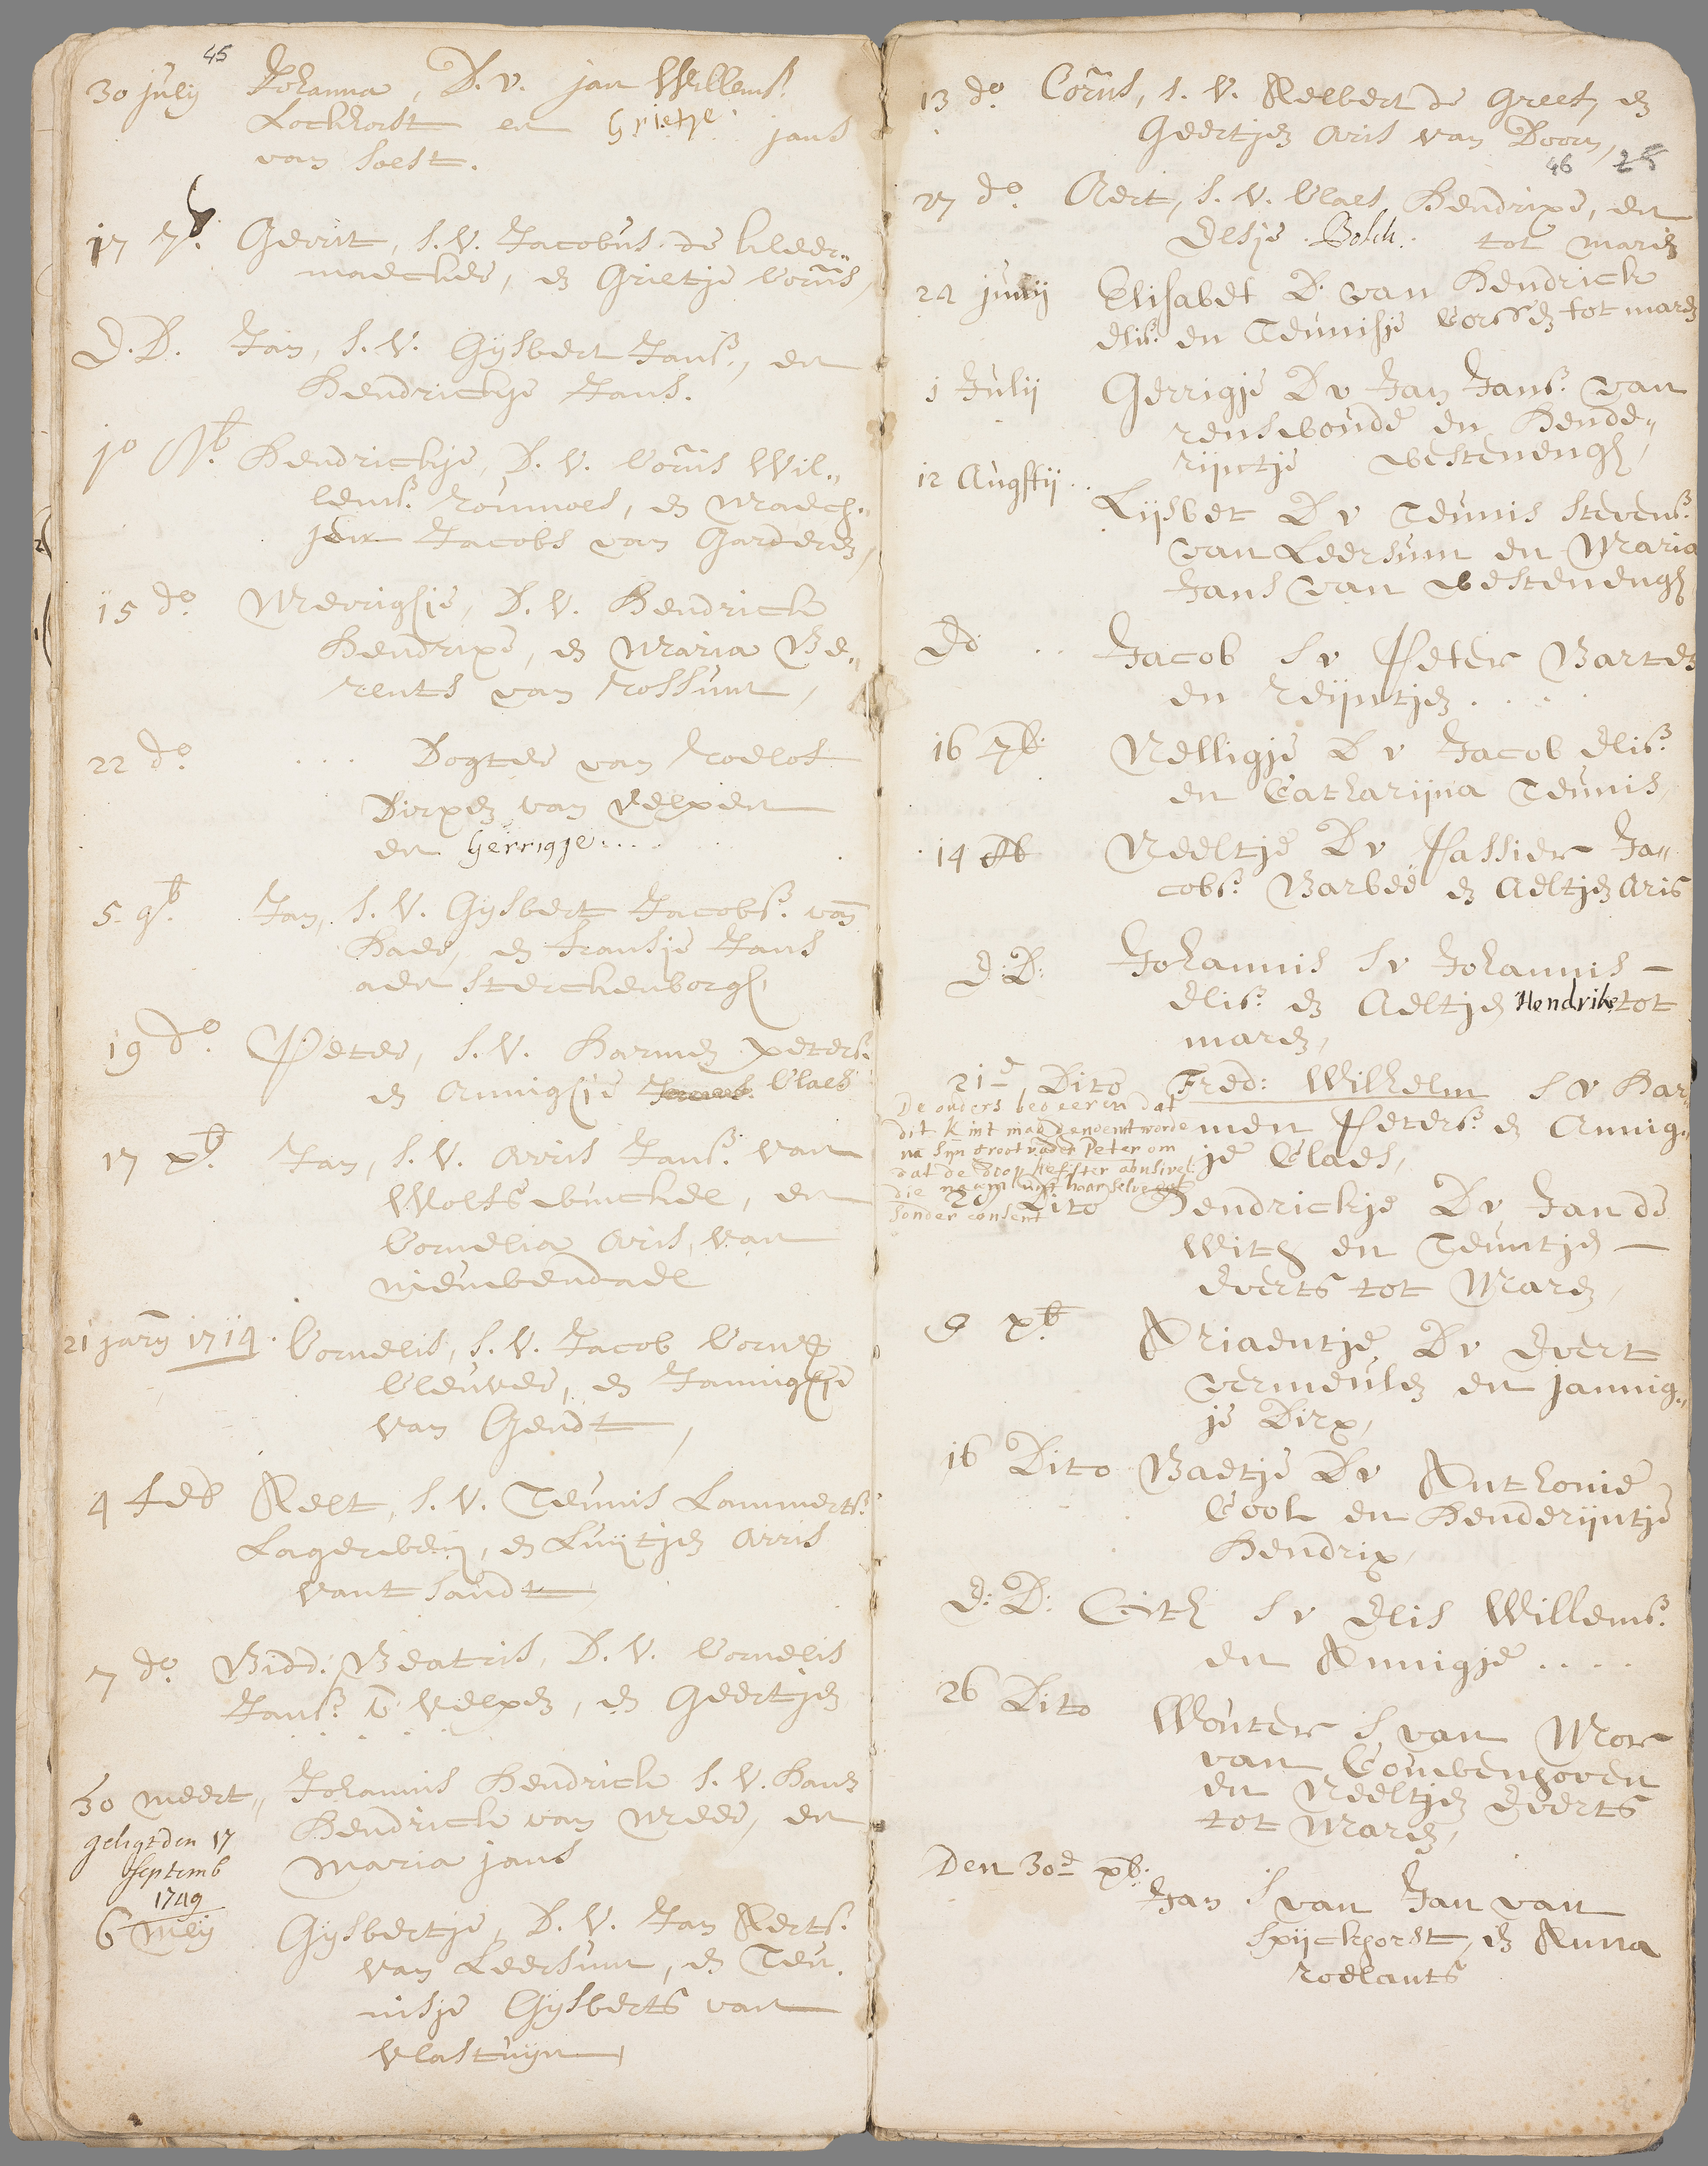 45
30 julij Johanna, D. v. jan Willems.
Lockhorst en Grietje jans
van Soest.
17 7b. Gerrit, S. V. Jacobus de kleer„
maecker, en Grietje Corn̄s,
D. D. Jan, S. V. Gijsbert Jans., en
Hendrickje Jans.
10 Hendrickje, D. V. Corn̄s Wil„
lems. en Maech„
Jacobs van Garderen,
15 do Merrigjie, D. V. Hendrick
Hendrixe, en Maria Be„
rents van Rossum,
22 do. ... Dogter van Roelof
Dirxen van Velpen
en Gerrigje...
5. 9b. Jan, S. V. Gijsbert Jacobs. van
Hade, en Fransje Jans
aen Sterckenborgh,
19 do. Peter, S. V. Harmen peters.
en Annigjie Claes
17 xb. Jan, S. V. Arris Jans. van
Wolfswinckel, en
Cornelia Aris, van
nieuwendael
21 jarij 1714. Cornelis, S. V. Jacob Corn
Cleuver, en Jannigjie
van Gendt,
4 Feb Aelt, S. V. Teunis Lammerts.
Lagerweij, en Luijtjen Arris
vant Sandt
7 do. Bidd. Beatris, D. V. Cornelis
Jans. v Velpen, en Geertjen
. . . .
30 meert„ Johannis Hendrick S. V. Hans
Hendrick van Meer, en
Maria jans
geligt den 17
Septemb
1749
6 meij Gijsbertje, D. V. Jan Aerts.
van Leersum, en Teu„
nisje Gijsberts van
Vlastuijn,
13 do. Corn̄s, S. V. Aelbert de Greef, en
Geertjen Aris van Doorn,
46 28
27 do. Aert, S. V. Claes Hendrixe, en
Elsje . Bosch . tot maren
24 junij Elisabet D. van Hendrick
Elis. en Teunisje Corssen tot maren
1 Julij Gerrigje D v Jan Jans. van
renswoude en Hende„
rijntje westenengh,
12 Augstij . . Lijsbet D v Teunis Stevens.
van Leersum en Maria
Jans van westenengh
Ed . . Jacob S v Peter Barten
en Reijntjen . . . .
16 7b. Nelligje D v Jacob Elis.
en Catharijna Teunis,
14 8b Neeltje D v Passier Ja„
cobs. Barbeé en Aeltjen Aris
E: D: Johannis S v Johannis —
Elis. en Aeltjen Hendriks tot
maren,
21e Dito Fred: Wilhelm S v Har„
men Peters. en Annig„
je Claes,
De ouders begeeren dat
dit kint mag genoemt worde
na sijn grootvader Peter om
dat de doophefster abusivel.
die naem uijt haar selve gaf
sonder consent
28 Dito Hendrickje D v Jan de
With en Teuntje —
Everts tot Maren,
9 xb Ariaentje D v Evert
vermeulen en jannig„
je Dirx,
16 Dito Baetje D v Anthonie
Cool en Henderijntje
Hendrix,
E: D: S v Elis Willems.
en Annigje . . . .
26 Dito Wouter S van Mor
van Couwenhoven
en Neeltjen Everts
tot Maren,
Den 30e xb. Jan S van Jan van
Spijckhorst, en Anna
roelants